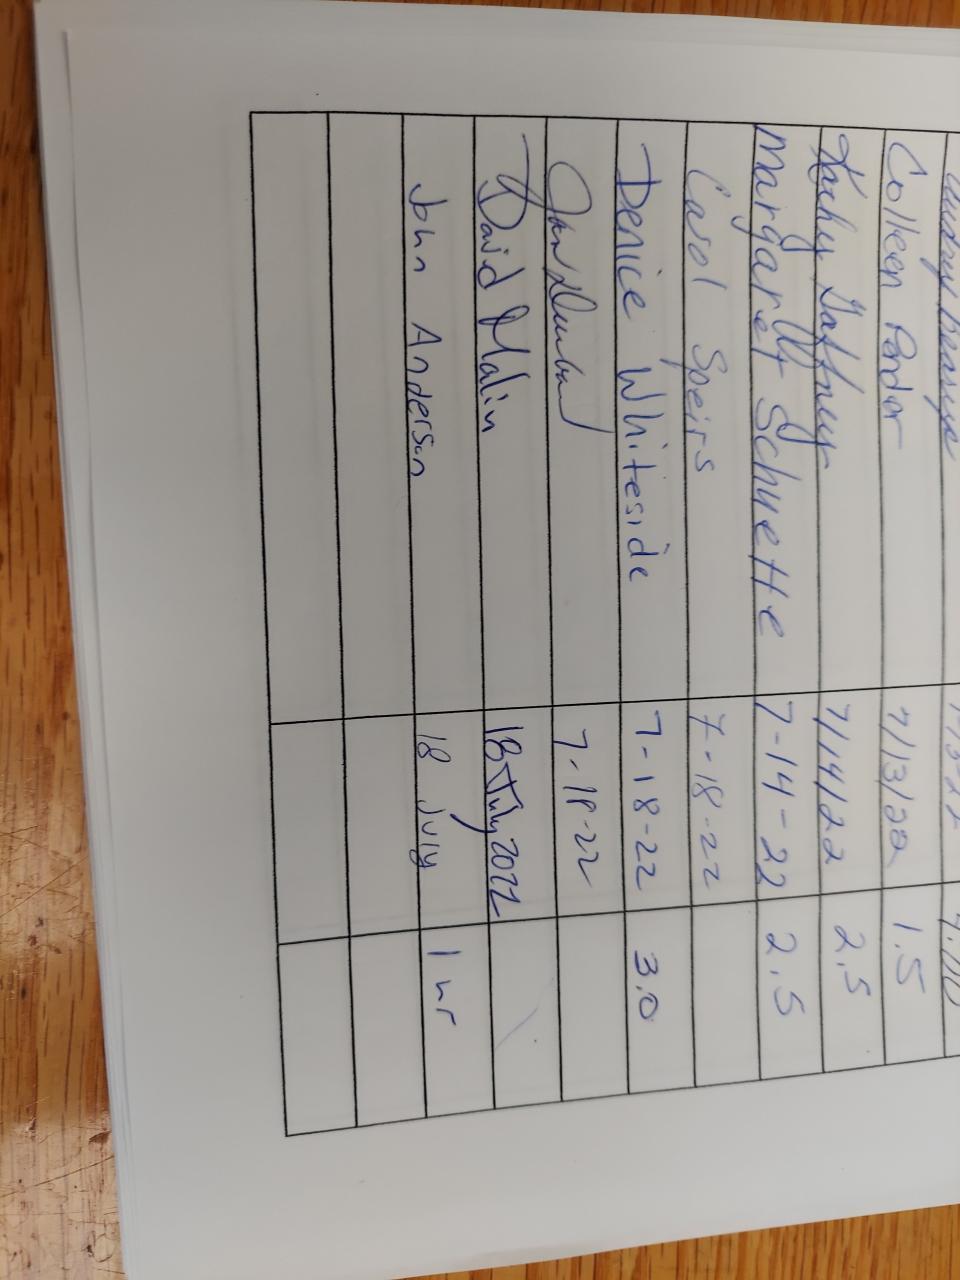 Colleen Pondor 7/13/22 1.5
Kathy Gaffney 7/14/22 2.5
Margaret Schuette 7-14-22 2.5
Carol Speirs 7-18-22
Denice Whiteside 7-18-22 3.0
7-18-22
David Malin 18 July 2022
John Anderson 18 July 1 hr